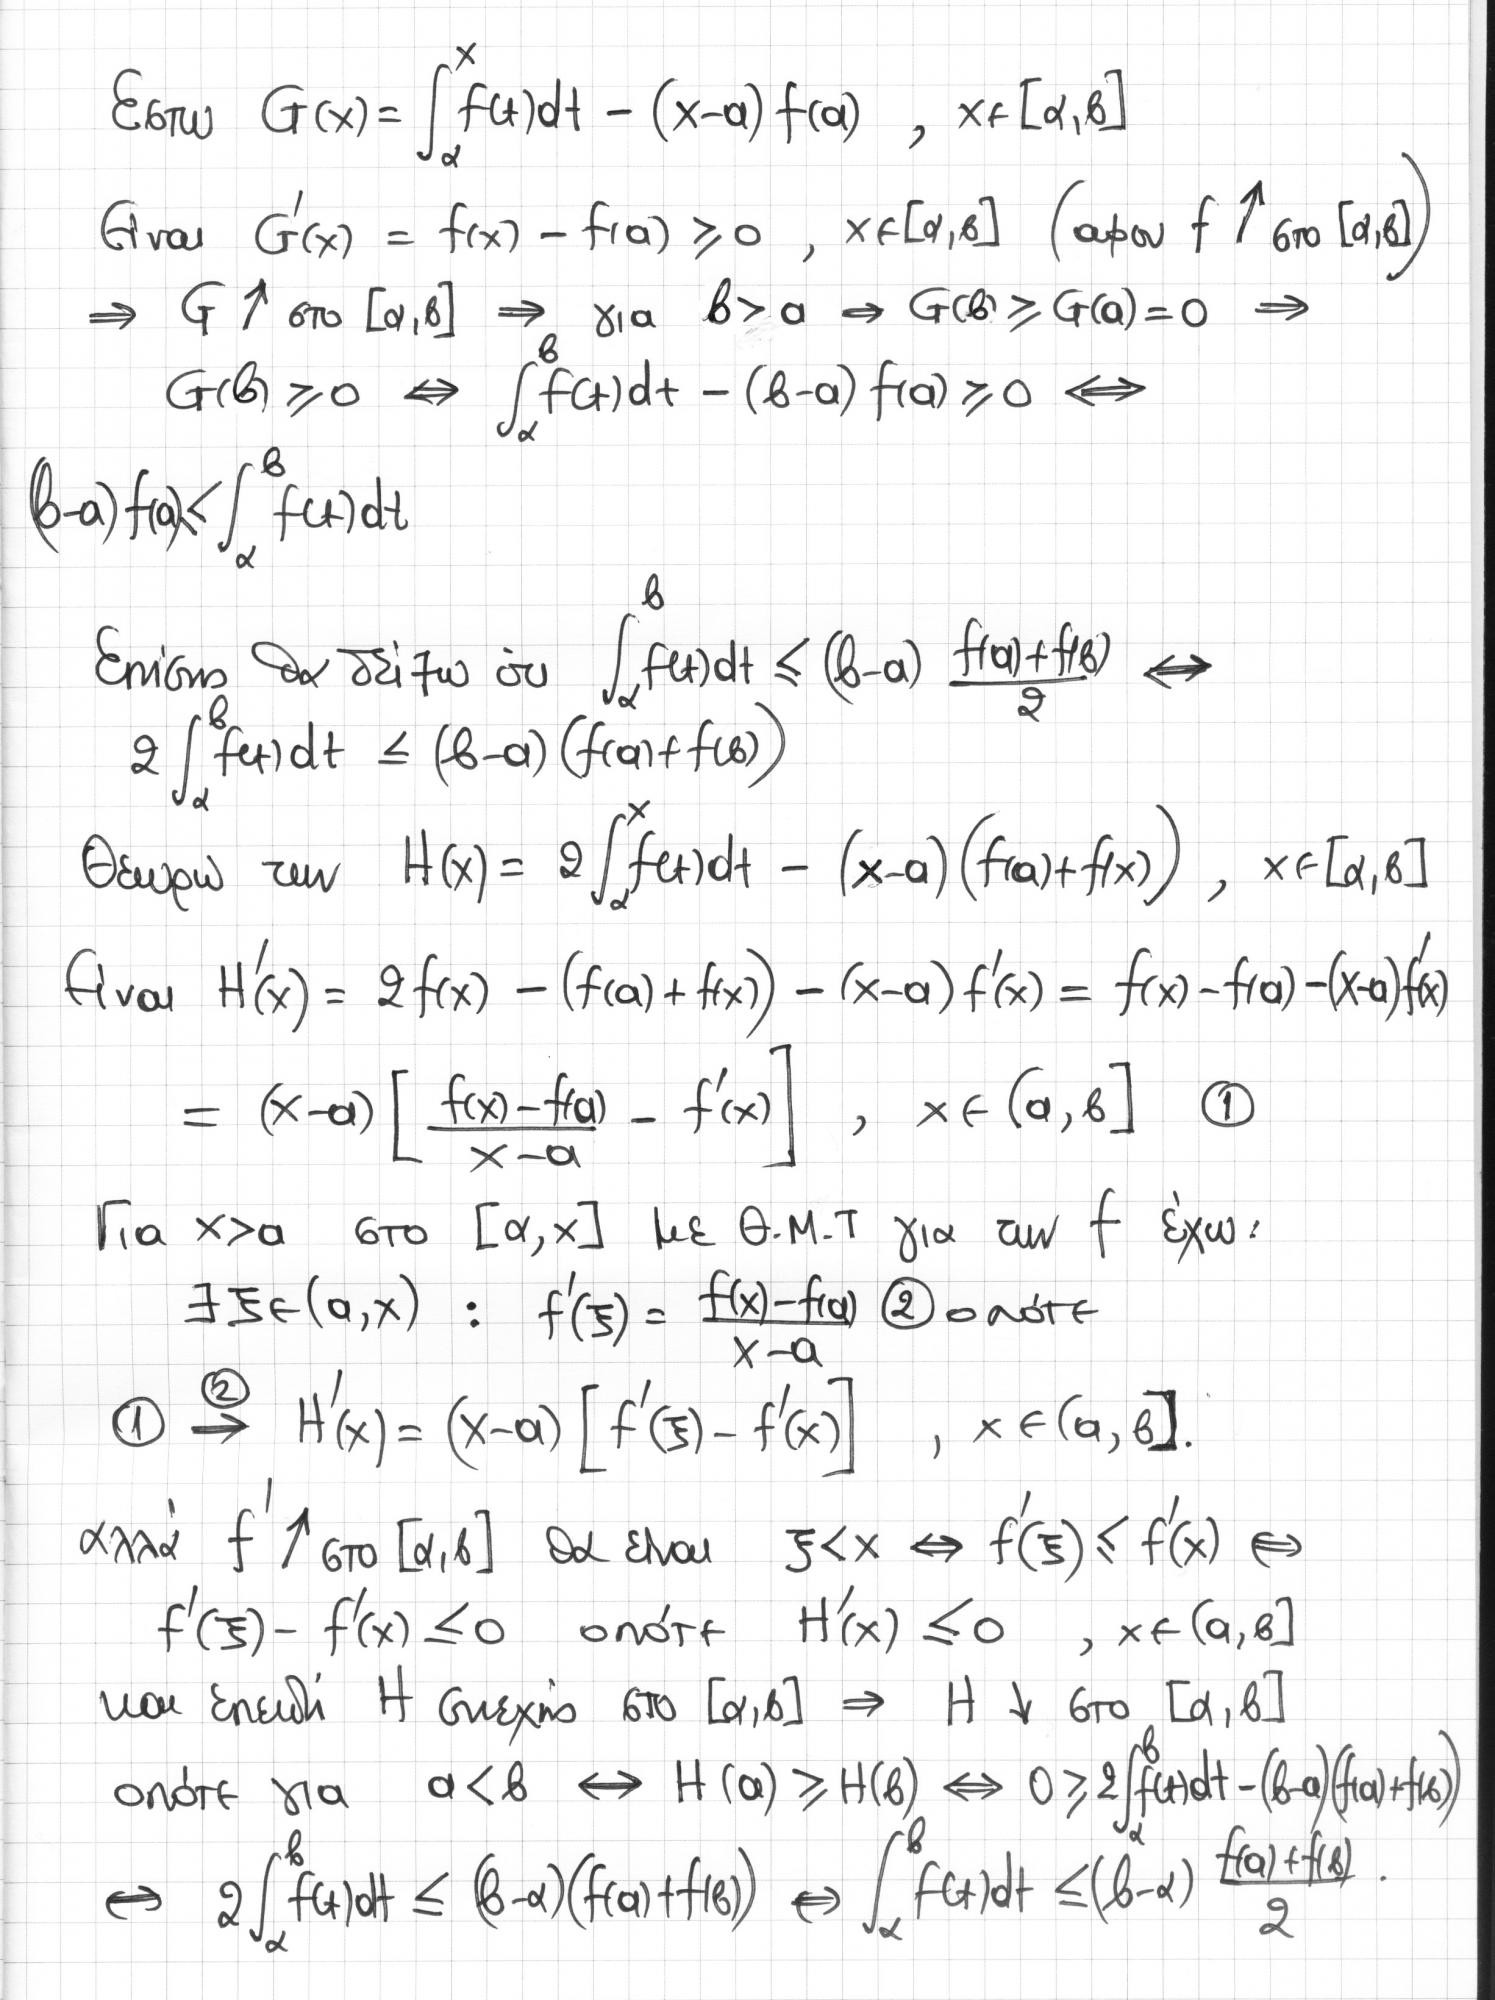 Εστω G(x) = ∫_α^x f(t)dt − (x−a) f(a) , x∈[α,β]
Είναι G'(x) = f(x) − f(a) ⩾ 0 , x∈[α,β] (αφου f ↑ στο [α,β])
⇒ G ↑ στο [α,β] ⇒ για β > a ⇒ G(β) ⩾ G(a) = 0 ⇒
G(β) ⩾ 0 ⇔ ∫_α^β f(t)dt − (β−a) f(a) ⩾ 0 ⇔
(β−a) f(a) ⩽ ∫_α^β f(t)dt
Επίσης θα δείξω ότι ∫_α^β f(t)dt ⩽ (β−a) (f(a)+f(β))/2 ⇔
2∫_α^β f(t)dt ≤ (β−a)(f(a)+f(β))
Θεωρω την H(x) = 2∫_α^x f(t)dt − (x−a)(f(a)+f(x)) , x∈[α,β]
Είναι H'(x) = 2f(x) − (f(a)+f(x)) − (x−a)f'(x) = f(x)−f(a)−(x−a)f'(x)
= (x−a) [ (f(x)−f(a))/(x−a) − f'(x) ] , x∈(a,β] ①
Για x>a στο [α,x] με Θ.Μ.Τ για την f έχω:
∃ ξ∈(a,x) : f'(ξ) = (f(x)−f(a))/(x−a) ② οπότε
① →② H'(x) = (x−a) [ f'(ξ) − f'(x) ] , x∈(a,β].
αλλά f' ↑ στο [α,β] θα είναι ξ<x ⇔ f'(ξ) ⩽ f'(x) ⇔
f'(ξ) − f'(x) ≤ 0 οπότε H'(x) ≤ 0 , x∈(a,β]
και επειδή H συνεχής στο [α,β] ⇒ H ↓ στο [α,β]
οπότε για a<β ⇔ H(a) ⩾ H(β) ⇔ 0 ⩾ 2∫_α^β f(t)dt −(β−a)(f(a)+f(β))
⇔ 2∫_α^β f(t)dt ≤ (β−α)(f(a)+f(β)) ⇔ ∫_α^β f(t)dt ≤ (β−α) (f(a)+f(β))/2 .